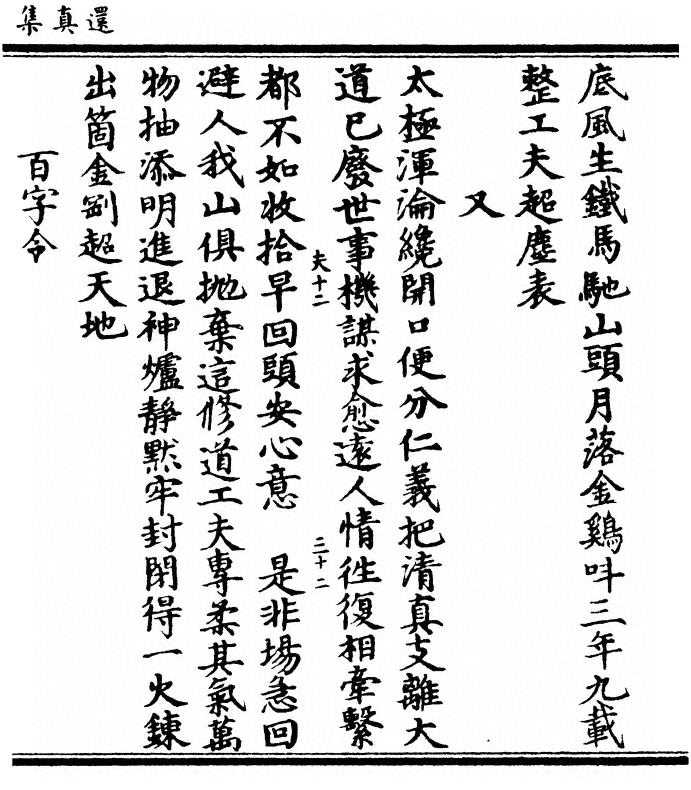 還真集
底風生鐵馬馳山頭月落金鷄呌三年九載
整工夫超塵表
又
太極渾淪纔開口便分仁義把清真支離大
道已廢世事機謀求愈遠人情徃復相牽繫
夫十二
三十二
都不如收拾早回頭安心意　是非場急回
避人我山俱抛棄這修道工夫專柔其氣萬
物抽添明進退神爐靜默牢封閉得一火鍊
出箇金剛超天地
百字令